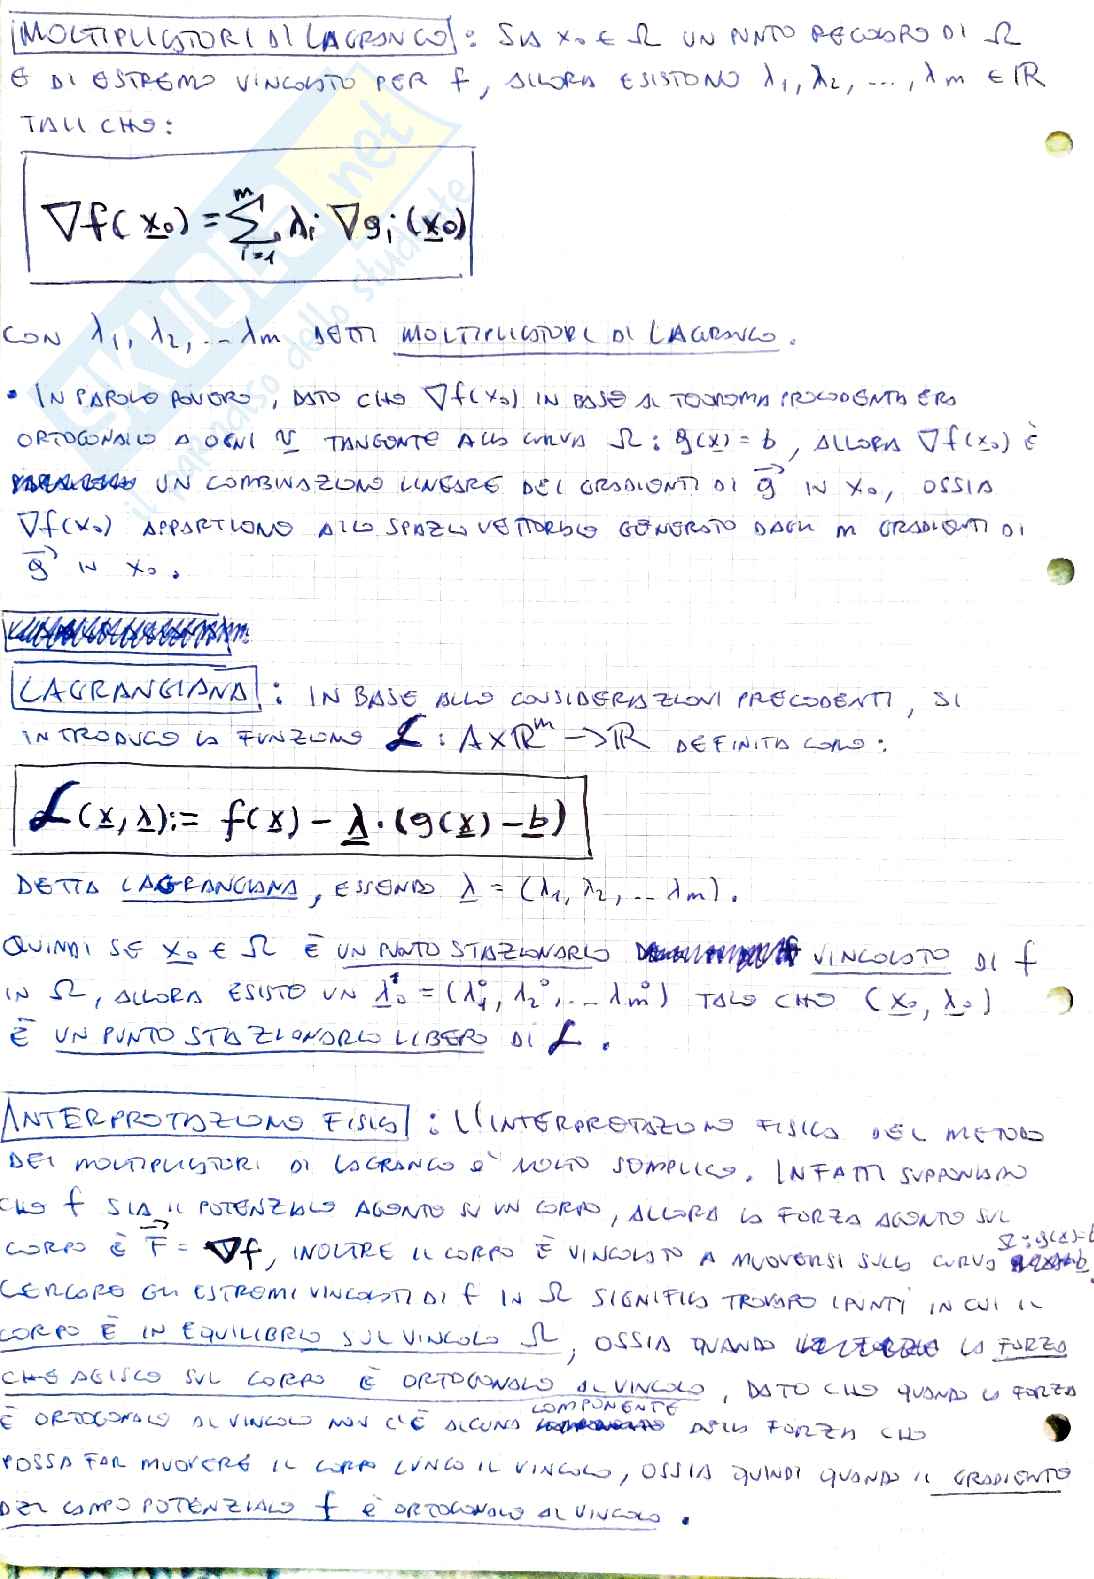 MOLTIPLICATORI DI LAGRANGE : SIA x₀ ∈ Ω UN PUNTO REGOLARE DI Ω
E DI ESTREMO VINCOLATO PER f, ALLORA ESISTONO λ₁, λ₂, ..., λm ∈ ℝ
TALI CHE :
∇f(x₀) = Σ_{i=1}^{m} λi ∇gi(x₀)
CON λ₁, λ₂, ... λm DETTI MOLTIPLICATORI DI LAGRANGE.
• IN PAROLE POVERE, DATO CHE ∇f(x₀) IN BASE AL TEOREMA PRECEDENTE ERA
ORTOGONALE A OGNI v TANGENTE ALLA CURVA Ω : g(x) = b, ALLORA ∇f(x₀) È
UN COMBINAZIONE LINEARE DEI GRADIENTI DI g⃗ IN x₀, OSSIA
∇f(x₀) APPARTIENE ALLO SPAZIO VETTORIALE GENERATO DAGLI m GRADIENTI DI
g⃗ IN x₀.
LAGRANGIANA : IN BASE ALLE CONSIDERAZIONI PRECEDENTI, SI
INTRODUCE LA FUNZIONE ℒ : A×ℝᵐ → ℝ DEFINITA COME :
ℒ(x, λ) := f(x) - λ · (g(x) - b)
DETTA LAGRANGIANA, ESSENDO λ = (λ₁, λ₂, ... λm).
QUINDI SE x₀ ∈ Ω È UN PUNTO STAZIONARIO VINCOLATO DI f
IN Ω, ALLORA ESISTE UN λ₀ = (λ₁°, λ₂°, ... λm°) TALE CHE (x₀, λ₀)
È UN PUNTO STAZIONARIO LIBERO DI ℒ.
INTERPRETAZIONE FISICA : L'INTERPRETAZIONE FISICA DEL METODO
DEI MOLTIPLICATORI DI LAGRANGE È MOLTO SEMPLICE. INFATTI SUPPONIAMO
CHE f SIA IL POTENZIALE AGENTE SU UN CORPO, ALLORA LA FORZA AGENTE SUL
CORPO È F⃗ = ∇f, INOLTRE IL CORPO È VINCOLATO A MUOVERSI SULLA CURVA Ω : g(x)=b
CERCARE GLI ESTREMI VINCOLATI DI f IN Ω SIGNIFICA TROVARE I PUNTI IN CUI IL
CORPO È IN EQUILIBRIO SUL VINCOLO Ω, OSSIA QUANDO LA FORZA
CHE AGISCE SUL CORPO È ORTOGONALE AL VINCOLO, DATO CHE QUANDO LA FORZA
È ORTOGONALE AL VINCOLO NON C'È ALCUNA COMPONENTE DELLA FORZA CHE
POSSA FAR MUOVERE IL CORPO LUNGO IL VINCOLO, OSSIA QUINDI QUANDO IL GRADIENTE
DEL CAMPO POTENZIALE f È ORTOGONALE AL VINCOLO.
SKUOLA.net
il paradiso dello studente